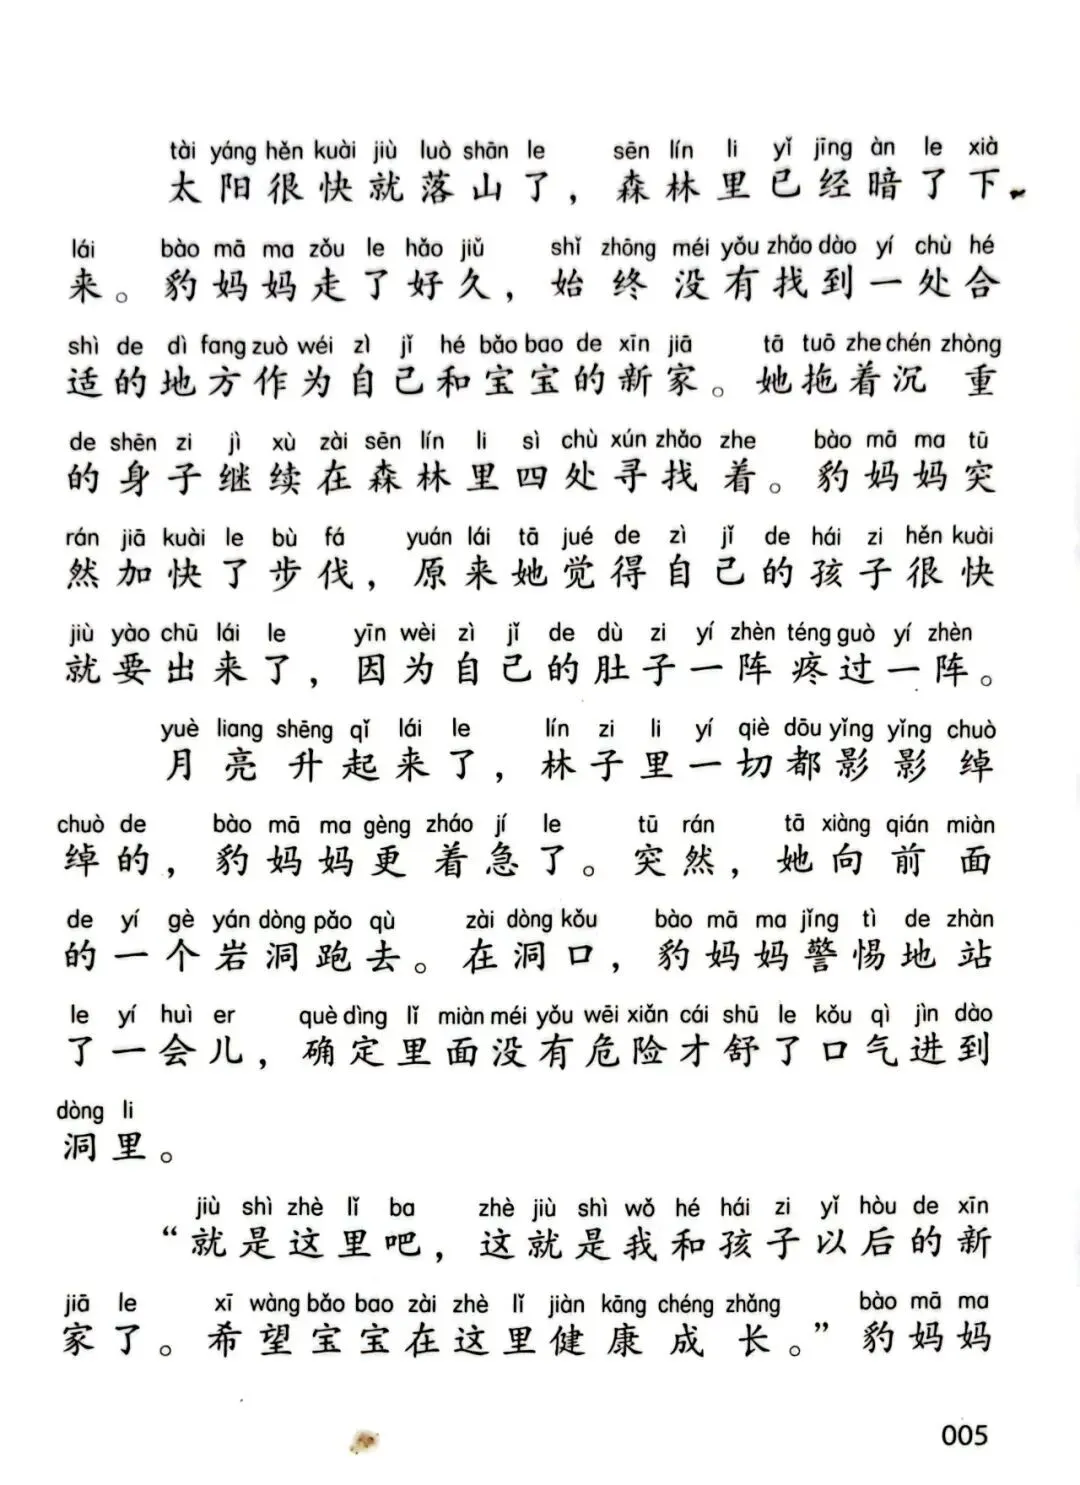 tài yáng hěn kuài jiù luò shān le sēn lín li yǐ jīng àn le xià
太阳很快就落山了，森林里已经暗了下
lái bào mā ma zǒu le hǎo jiǔ shǐ zhōng méi yǒu zhǎo dào yí chù hé
来。豹妈妈走了好久，始终没有找到一处合
shì de dì fang zuò wéi zì jǐ hé bǎo bao de xīn jiā tā tuō zhe chén zhòng
适的地方作为自己和宝宝的新家。她拖着沉重
de shēn zi jì xù zài sēn lín li sì chù xún zhǎo zhe bào mā ma tū
的身子继续在森林里四处寻找着。豹妈妈突
rán jiā kuài le bù fá yuán lái tā jué de zì jǐ de hái zi hěn kuài
然加快了步伐，原来她觉得自己的孩子很快
jiù yào chū lái le yīn wèi zì jǐ de dù zi yí zhèn téng guò yí zhèn
就要出来了，因为自己的肚子一阵疼过一阵。
yuè liang shēng qǐ lái le lín zi li yí qiè dōu yǐng yǐng chuò
月亮升起来了，林子里一切都影影绰
chuò de bào mā ma gèng zháo jí le tū rán tā xiàng qián miàn
绰的，豹妈妈更着急了。突然，她向前面
de yí gè yán dòng pǎo qù zài dòng kǒu bào mā ma jǐng tì de zhàn
的一个岩洞跑去。在洞口，豹妈妈警惕地站
le yí huì er què dìng lǐ miàn méi yǒu wēi xiǎn cái shū le kǒu qì jìn dào
了一会儿，确定里面没有危险才舒了口气进到
dòng li
洞里。
jiù shì zhè lǐ ba zhè jiù shì wǒ hé hái zi yǐ hòu de xīn
“就是这里吧，这就是我和孩子以后的新
jiā le xī wàng bǎo bao zài zhè lǐ jiàn kāng chéng zhǎng bào mā ma
家了。希望宝宝在这里健康成长。”豹妈妈
005